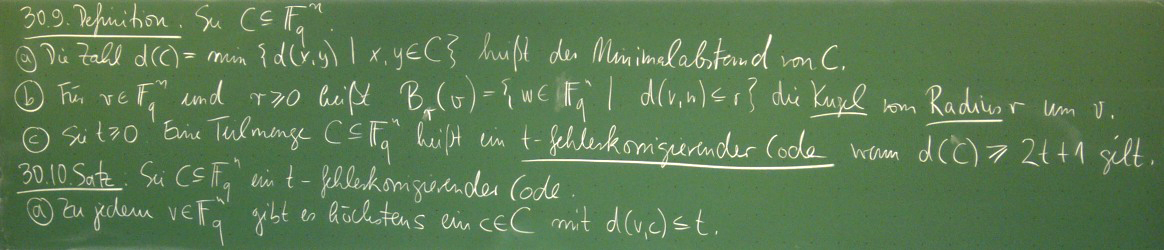 30.9. Definition. Sei C ⊆ 𝔽_q^n.
ⓐ Die Zahl d(C) = min { d(x,y) | x, y ∈ C } heißt der Minimalabstand von C.
ⓑ Für v ∈ 𝔽_q^n und r ≥ 0 heißt B_r(v) = { w ∈ 𝔽_q^n | d(v,w) ≤ r } die Kugel vom Radius r um v.
ⓒ Sei t ≥ 0 Eine Teilmenge C ⊆ 𝔽_q^n heißt ein t-fehlerkorrigierender Code wenn d(C) ⩾ 2t+1 gilt.
30.10. Satz. Sei C ⊆ 𝔽_q^n ein t-fehlerkorrigierender Code.
ⓐ Zu jedem v ∈ 𝔽_q^n gibt es höchstens ein c ∈ C mit d(v,c) ≤ t.